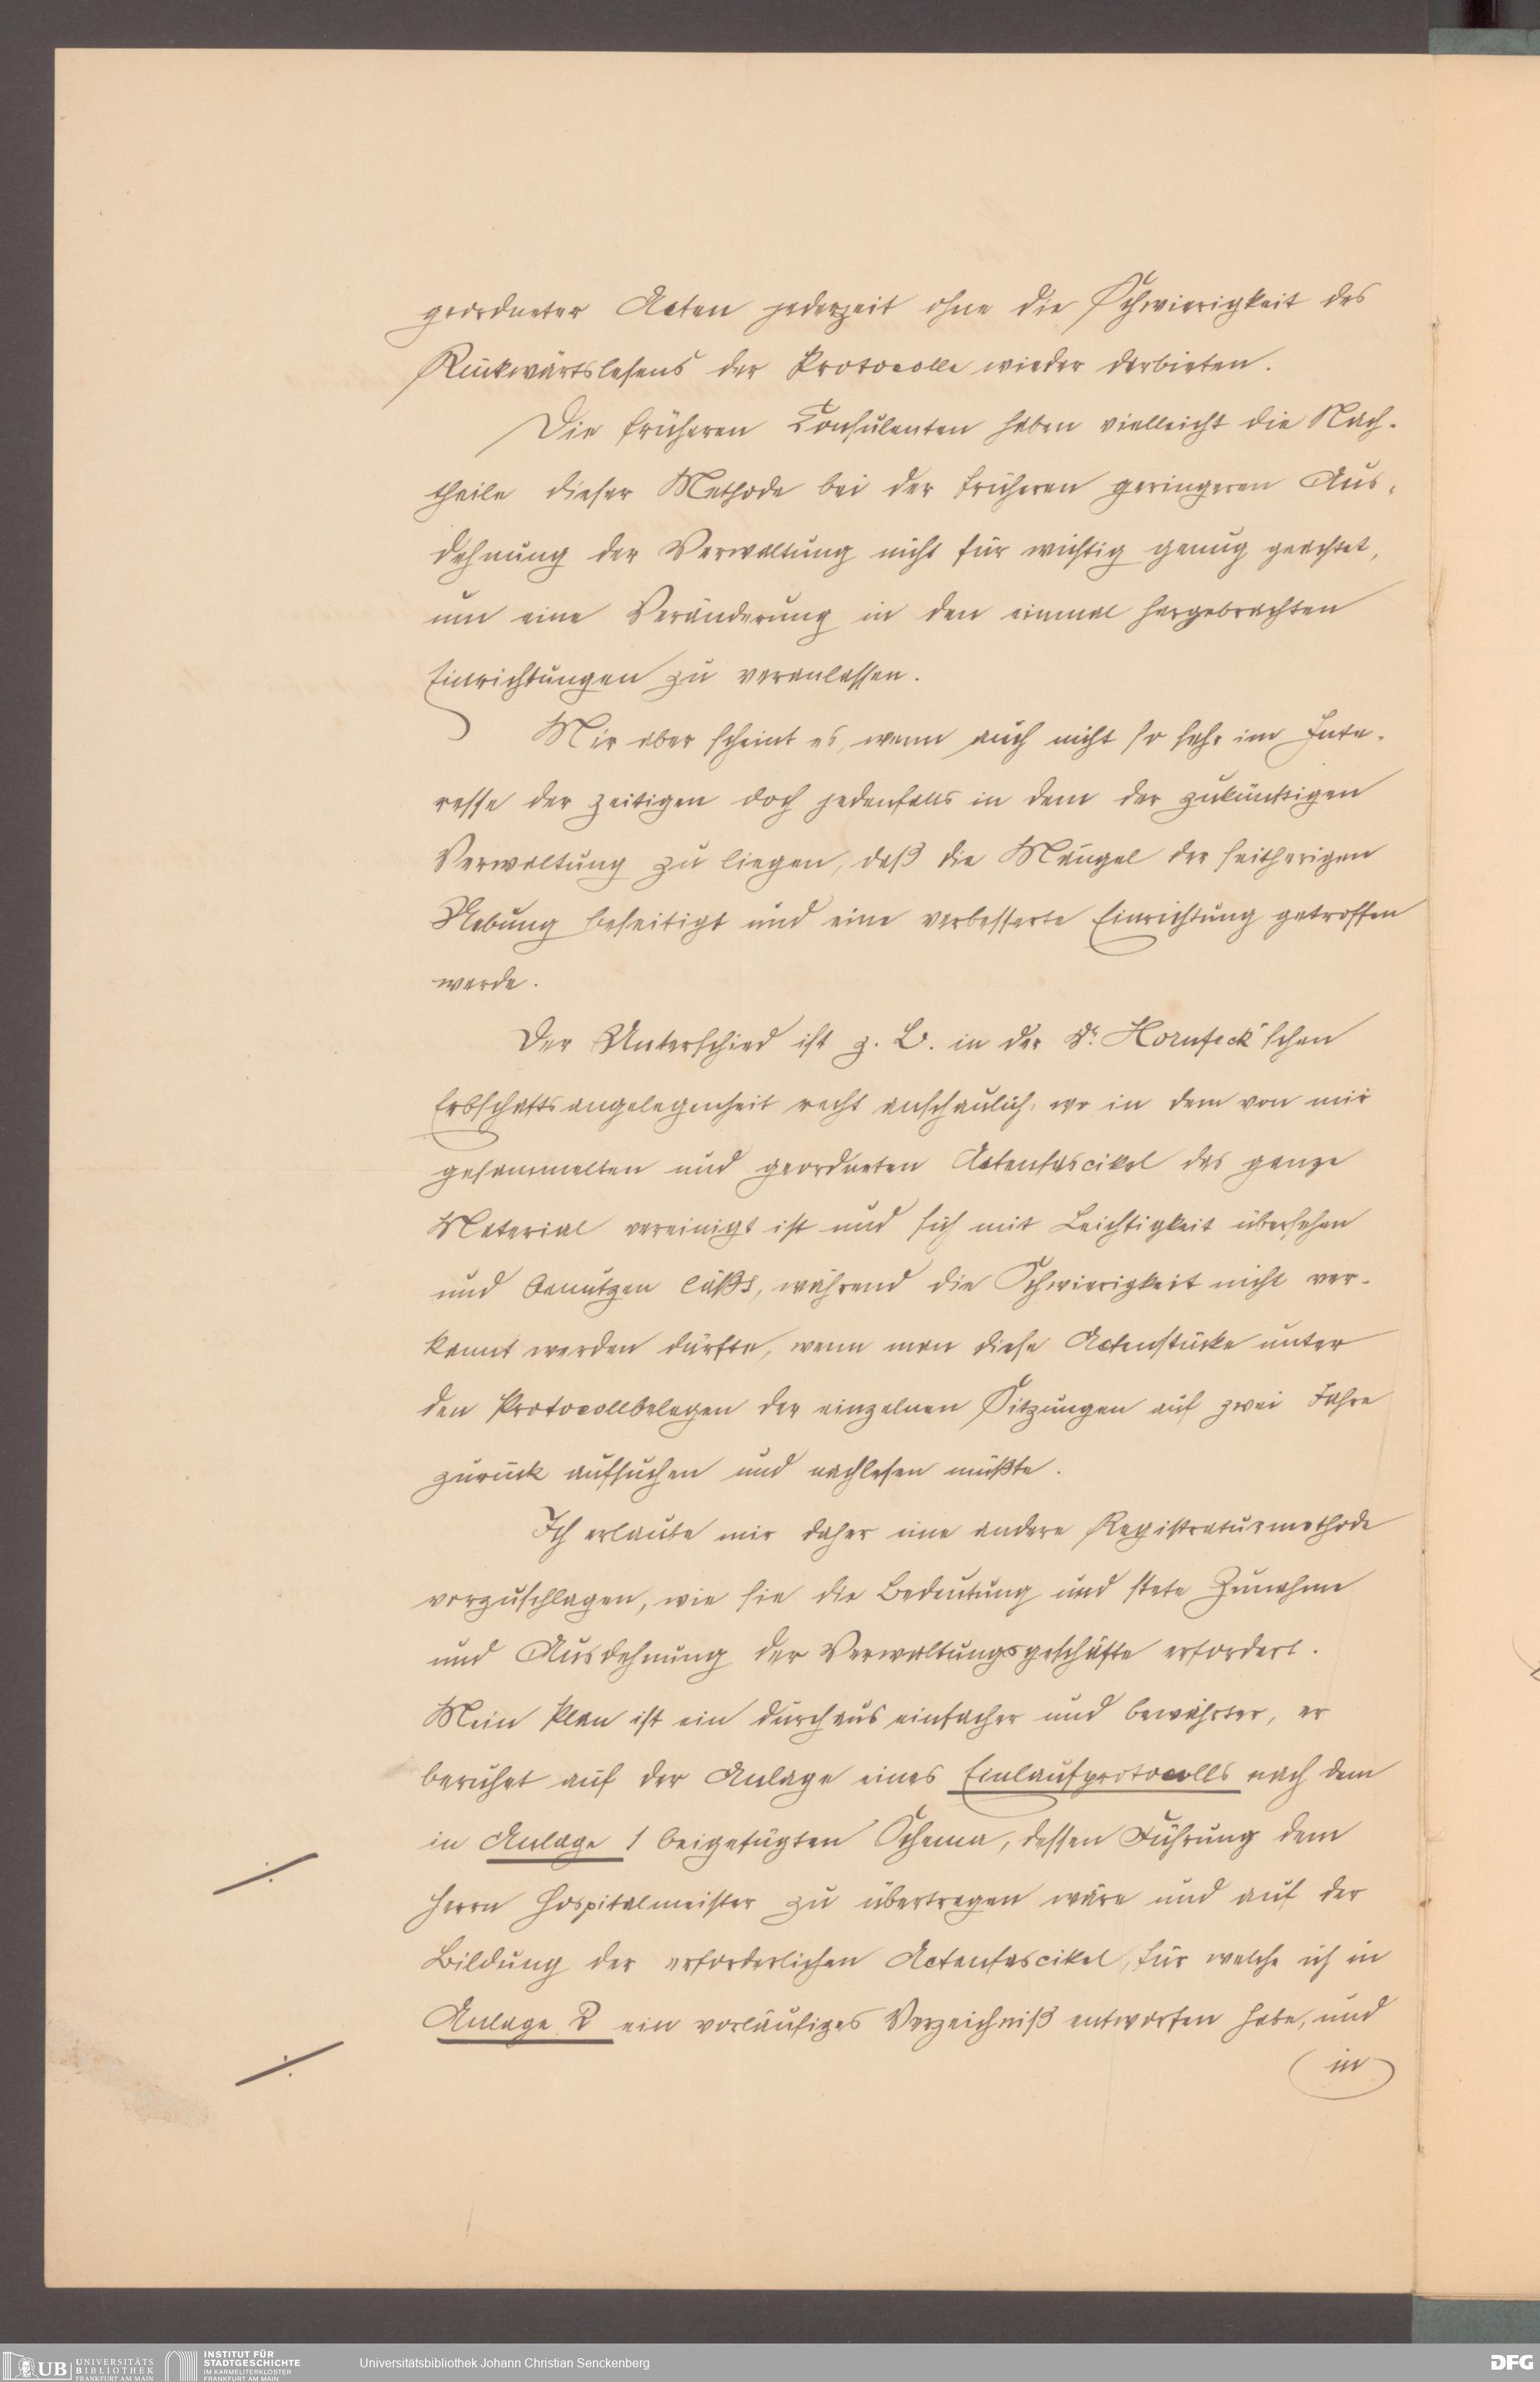 geordneter Acten jederzeit ohne die Schwierigkeit des
Rückwärtslesens der Protocolle wieder darbieten.
Die früheren Consulenten haben vielleicht die Nach-
theile dieser Methode bei der früheren geringeren Aus-
dehnung der Verwaltung nicht für wichtig genug geachtet,
um eine Veränderung in den einmal hergebrachten
Einrichtungen zu veranlassen.
Mir aber scheint es, wenn auch nicht so sehr im Inte-
resse der zeitigen doch jedenfalls in dem der zukünftigen
Verwaltung zu liegen, daß die Mängel der seitherigen
Uebung beseitigt und eine verbesserte Einrichtung getroffen
werde.
Der Unterschied ist z. B. in der Dr. Hornfeck'schen
Erbschaftsangelegenheit recht anschaulich, wo in dem von mir
gesammelten und geordneten Actenfascikel das ganze
Material vereinigt ist und sich mit Leichtigkeit übersehen
und benutzen läßt, während die Schwierigkeit nicht ver-
kannt werden dürfte, wenn man diese Actenstücke unter
den Protocollbelagen der einzelnen Sitzungen auf zwei Jahre
zurück aufsuchen und nachlesen müßte.
Ich erlaube mir daher eine andere Registraturmethode
vorzuschlagen, wie sie die Bedeutung und stete Zunahme
und Ausdehnung der Verwaltungsgeschäfte erfordert.
Mein Plan ist ein durchaus einfacher und bewährter, er
beruhet auf der Anlage eines Einlaufprotocolls nach dem
in Anlage 1 beigefügten Schema, dessen Führung dem
Herrn Hospitalmeister zu übertragen wäre und auf der
Bildung der erforderlichen Actenfascikel, für welche ich in
Anlage 2 ein vorläufiges Verzeichniß entworfen habe, und
in
UB UNIVERSITÄTS BIBLIOTHEK FRANKFURT AM MAIN
INSTITUT FÜR STADTGESCHICHTE IM KARMELITERKLOSTER FRANKFURT AM MAIN
Universitätsbibliothek Johann Christian Senckenberg
DFG